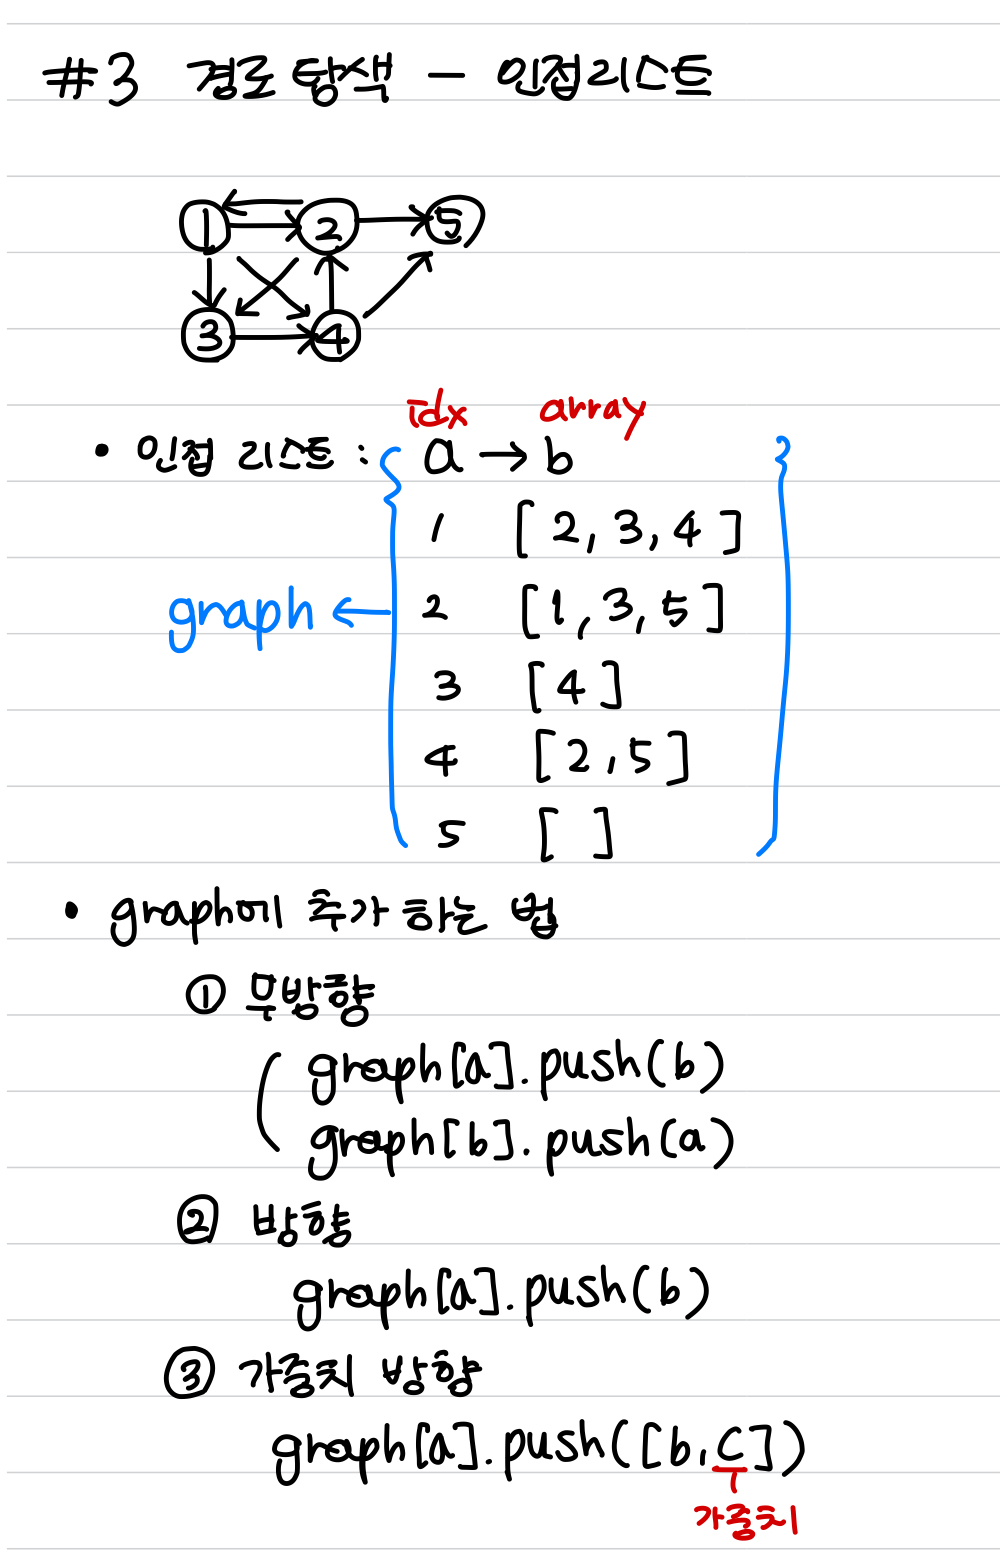 #3 경로 탐색 - 인접리스트
1 2 5
3 4
idx array
• 인접 리스트 : a → b
1 [ 2, 3, 4 ]
graph ← 2 [1, 3, 5 ]
3 [ 4 ]
4 [ 2, 5 ]
5 [ ]
• graph에 추가 하는 법
① 무방향
graph[a].push(b)
graph[b].push(a)
② 방향
graph[a].push(b)
③ 가중치 방향
graph[a].push([b, c])
가중치